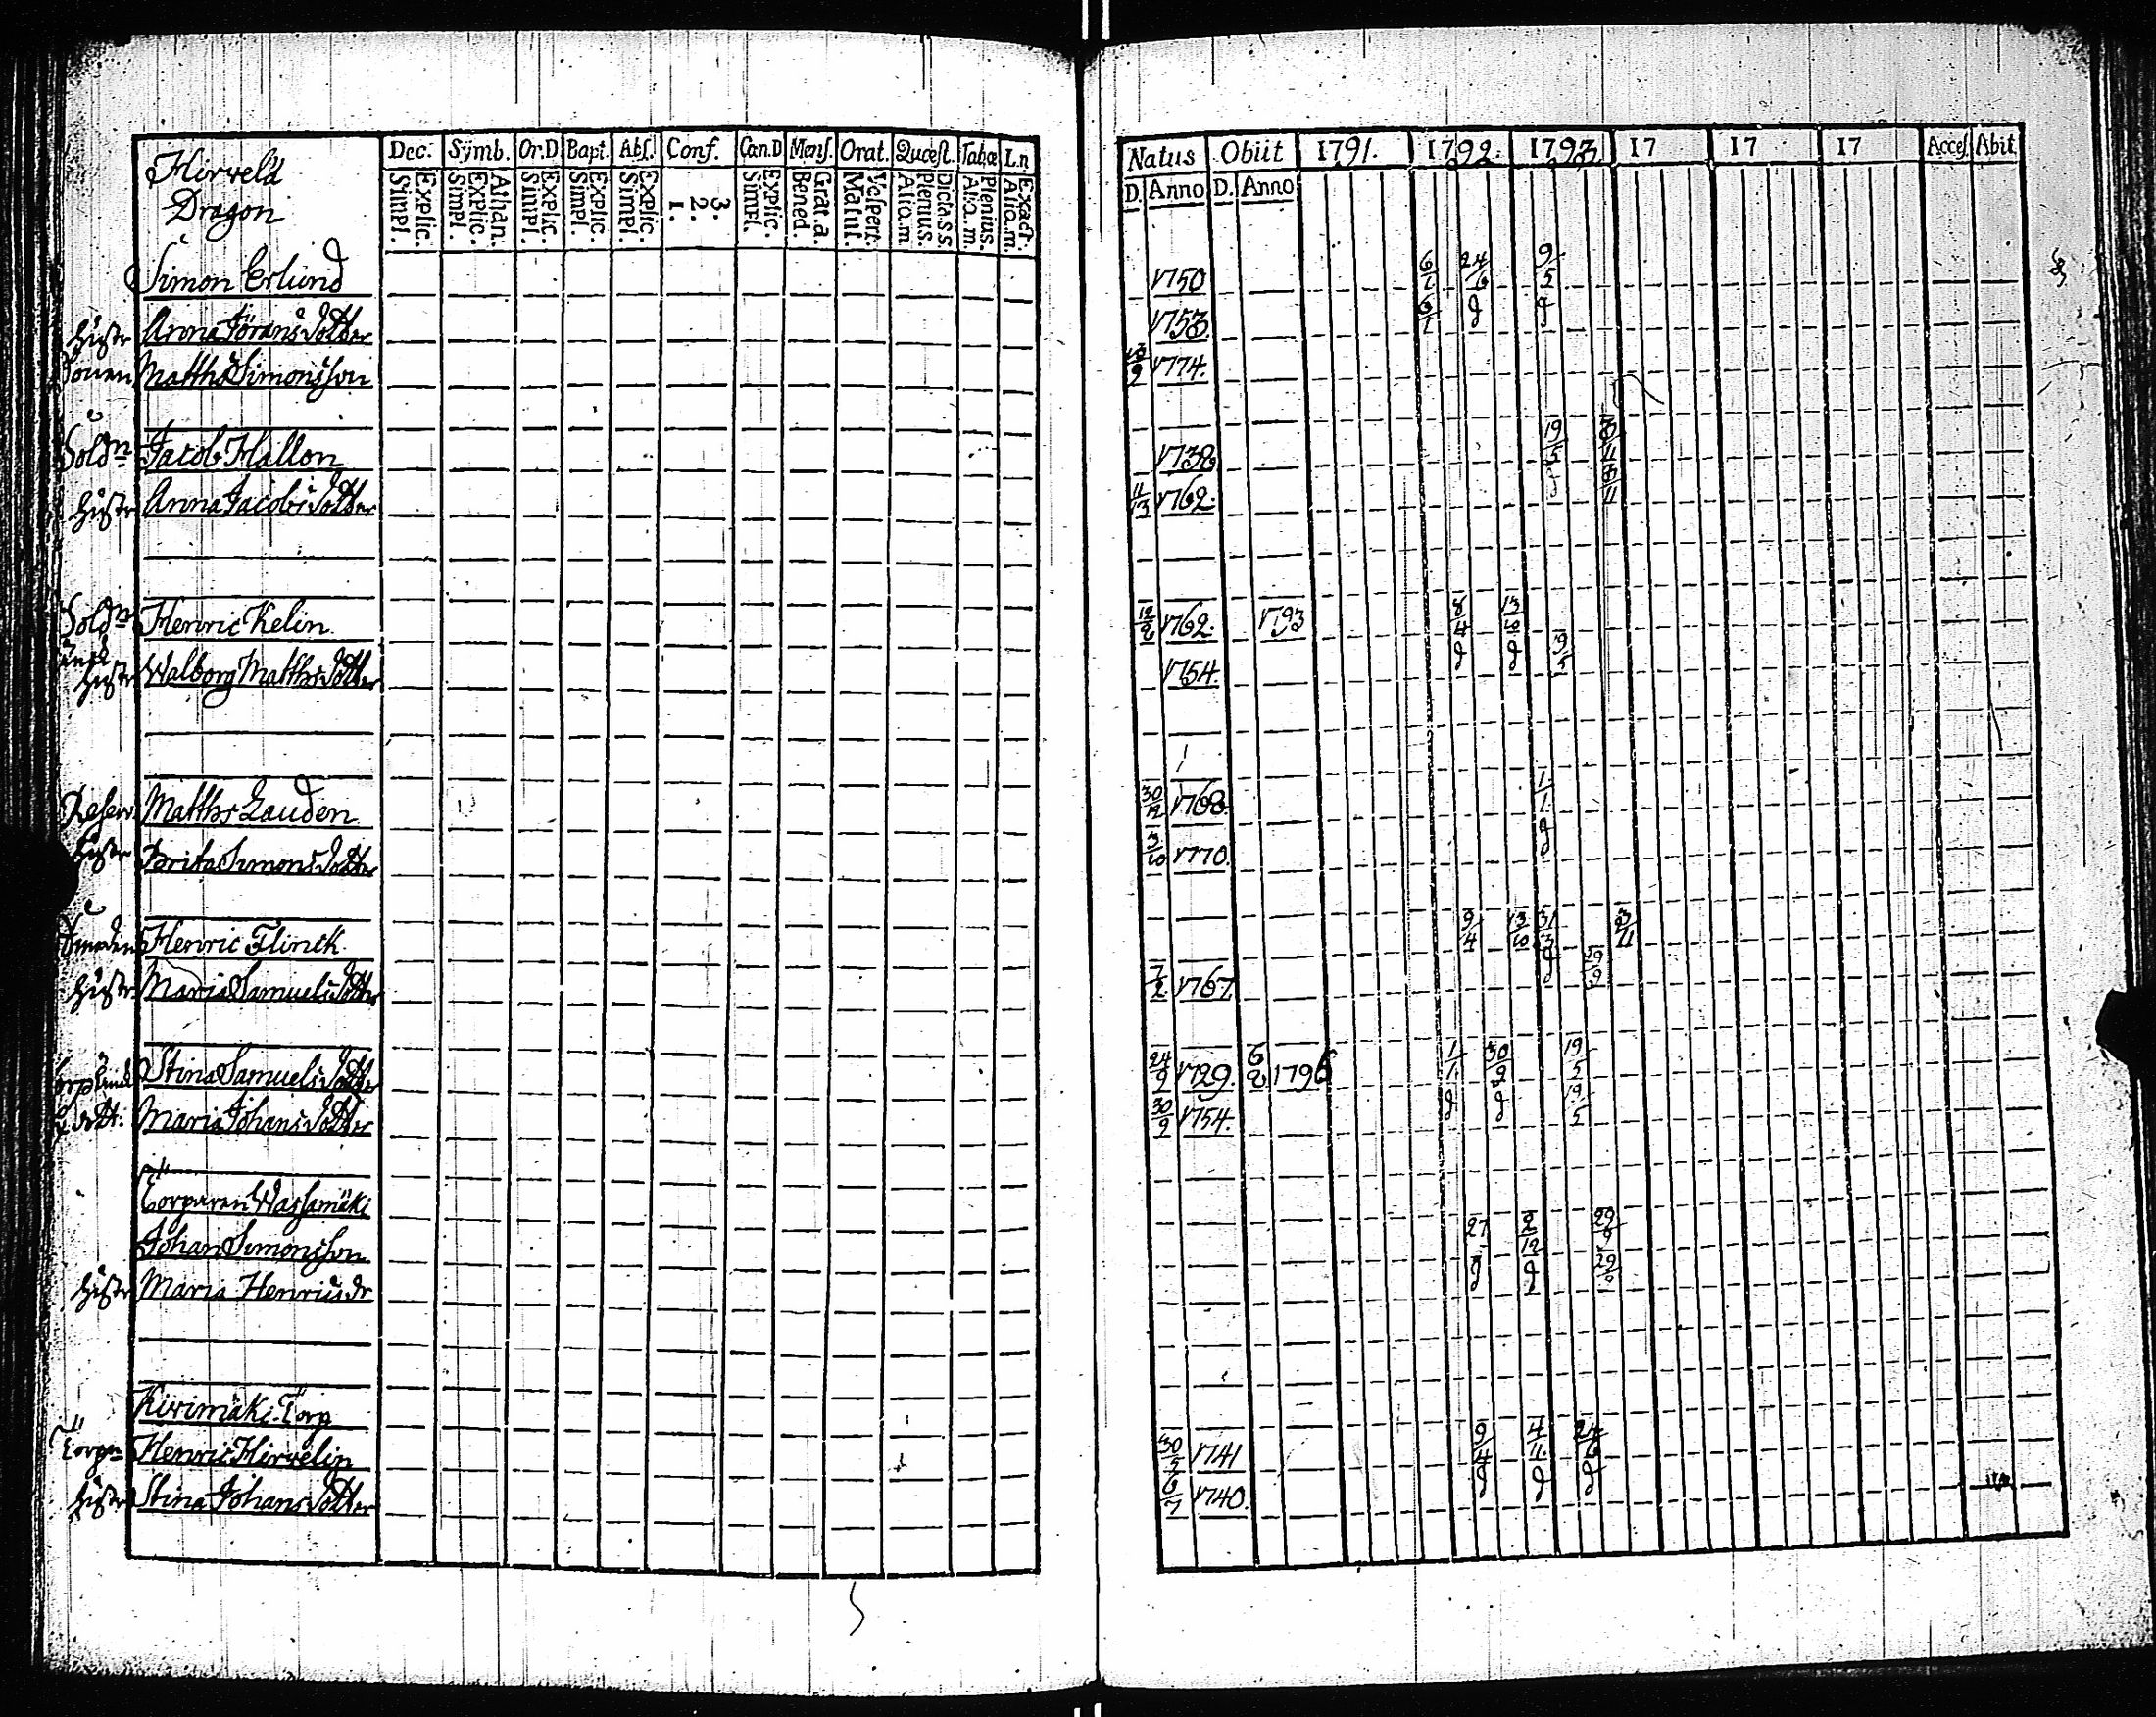 Hirvelä
Dragon
Dec. Symb. Or.D Bapt. Abs. Conf. Can.D Mens. Orat. Quœst. Tabœ L.n
Simpl. Explic. Simpl. Explic. Athan. Simpl. Explic. Simpl. Explic. Simpl. Explic. 1. 2. 3. Simpl. Explic. Bened. Grat. a. Matut. Vespert. Alio.m Plenius. Dicta.s.s. Alia.m. Plenius. Alia.m. Exact.
Natus Obiit 1791. 1792. 1793. 17 17 17 Acces. Abit.
D. Anno D. Anno
Simon Erlund 1750 6/1 24/6 9/5
Hustr Anna Jörans Dotter 1753 6/1
Sonen Matths Simonsson 1774.
Soldn Jacob Hallon 1738 19/5 3/11
Hustr Anna Jacobs Dotter 11/13 1762. 3/11
Soldn Henric Kelin 1762. 1793 8/4 13/10
Enck Hustr Walborg Matths Dotter 1754. 19/5
Reserv. Matths Lauden 30/12 1768. 1/1
Hustr Brita Simons Dotter 3/10 1770.
Henric Flinck 9/4 13/10 31/3 3/11
Hustr Maria Samuels Dotter 7/2 1767. 29/9
Stina Samuels Dotter 24/9 1729. 6/2 1796 1/1 30/9 19/5
dott: Maria Johans Dotter 30/9 1754. 19/5
Torparen Wassamäki
Johan Simonsson 27 2/12 29/9
Hustr Maria Henricsdr 29/9
Kivimäki Torp
Torpn Henric Hirvelin 30/5 1741 9/4 4/11 24/6
Hustr Stina Johans Dotter 6/7 1740.